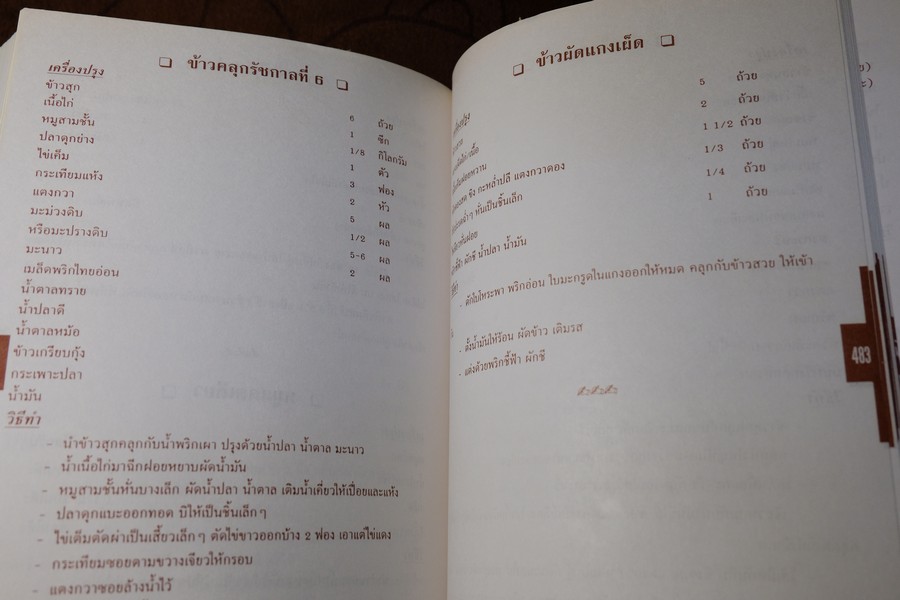 ข้าวคลุกรัชกาลที่ 6
เครื่องปรุง
ข้าวสุก 6 ถ้วย
เนื้อไก่ 1 ซีก
หมูสามชั้น 1/8 กิโลกรัม
ปลาดุกย่าง 1 ตัว
ไข่เค็ม 3 ฟอง
กระเทียมแห้ง 2 หัว
แตงกวา 5 ผล
มะม่วงดิบ 1/2 ผล
หรือมะปรางดิบ 5-6 ผล
มะนาว 2 ผล
เมล็ดพริกไทยอ่อน
น้ำตาลทราย
น้ำปลาดี
น้ำตาลหม้อ
ข้าวเกรียบกุ้ง
กระเพาะปลา
น้ำมัน
วิธีทำ
- นำข้าวสุกคลุกกับน้ำพริกเผา ปรุงด้วยน้ำปลา น้ำตาล มะนาว
- น้ำเนื้อไก่มาฉีกฝอยหยาบผัดน้ำมัน
- หมูสามชั้นหั่นบางเล็ก ผัดน้ำปลา น้ำตาล เติมน้ำเคี่ยวให้เปื่อยและแห้ง
- ปลาดุกแบะออกทอด บิให้เป็นชิ้นเล็กๆ
- ไข่เค็มตัดผ่าเป็นเสี้ยวเล็กๆ ตัดไข่ขาวออกบ้าง 2 ฟอง เอาแต่ไข่แดง
- กระเทียมซอยตามขวางเจียวให้กรอบ
- แตงกวาซอยล้างน้ำไว้
ข้าวผัดแกงเผ็ด
5 ถ้วย
2 ถ้วย
1 1/2 ถ้วย
ขิง กะหล่ำปลี แตงกวาดอง 1/3 ถ้วย
หั่นเป็นชิ้นเล็ก 1/4 ถ้วย
1 ถ้วย
ผักชี น้ำปลา น้ำมัน
- ตักใบโหระพา พริกอ่อน ใบมะกรูดในแกงออกให้หมด คลุกกับข้าวสวย ให้เข้า
- ตั้งน้ำมันให้ร้อน ผัดข้าว เติมรส
- แต่งด้วยพริกชี้ฟ้า ผักชี
483